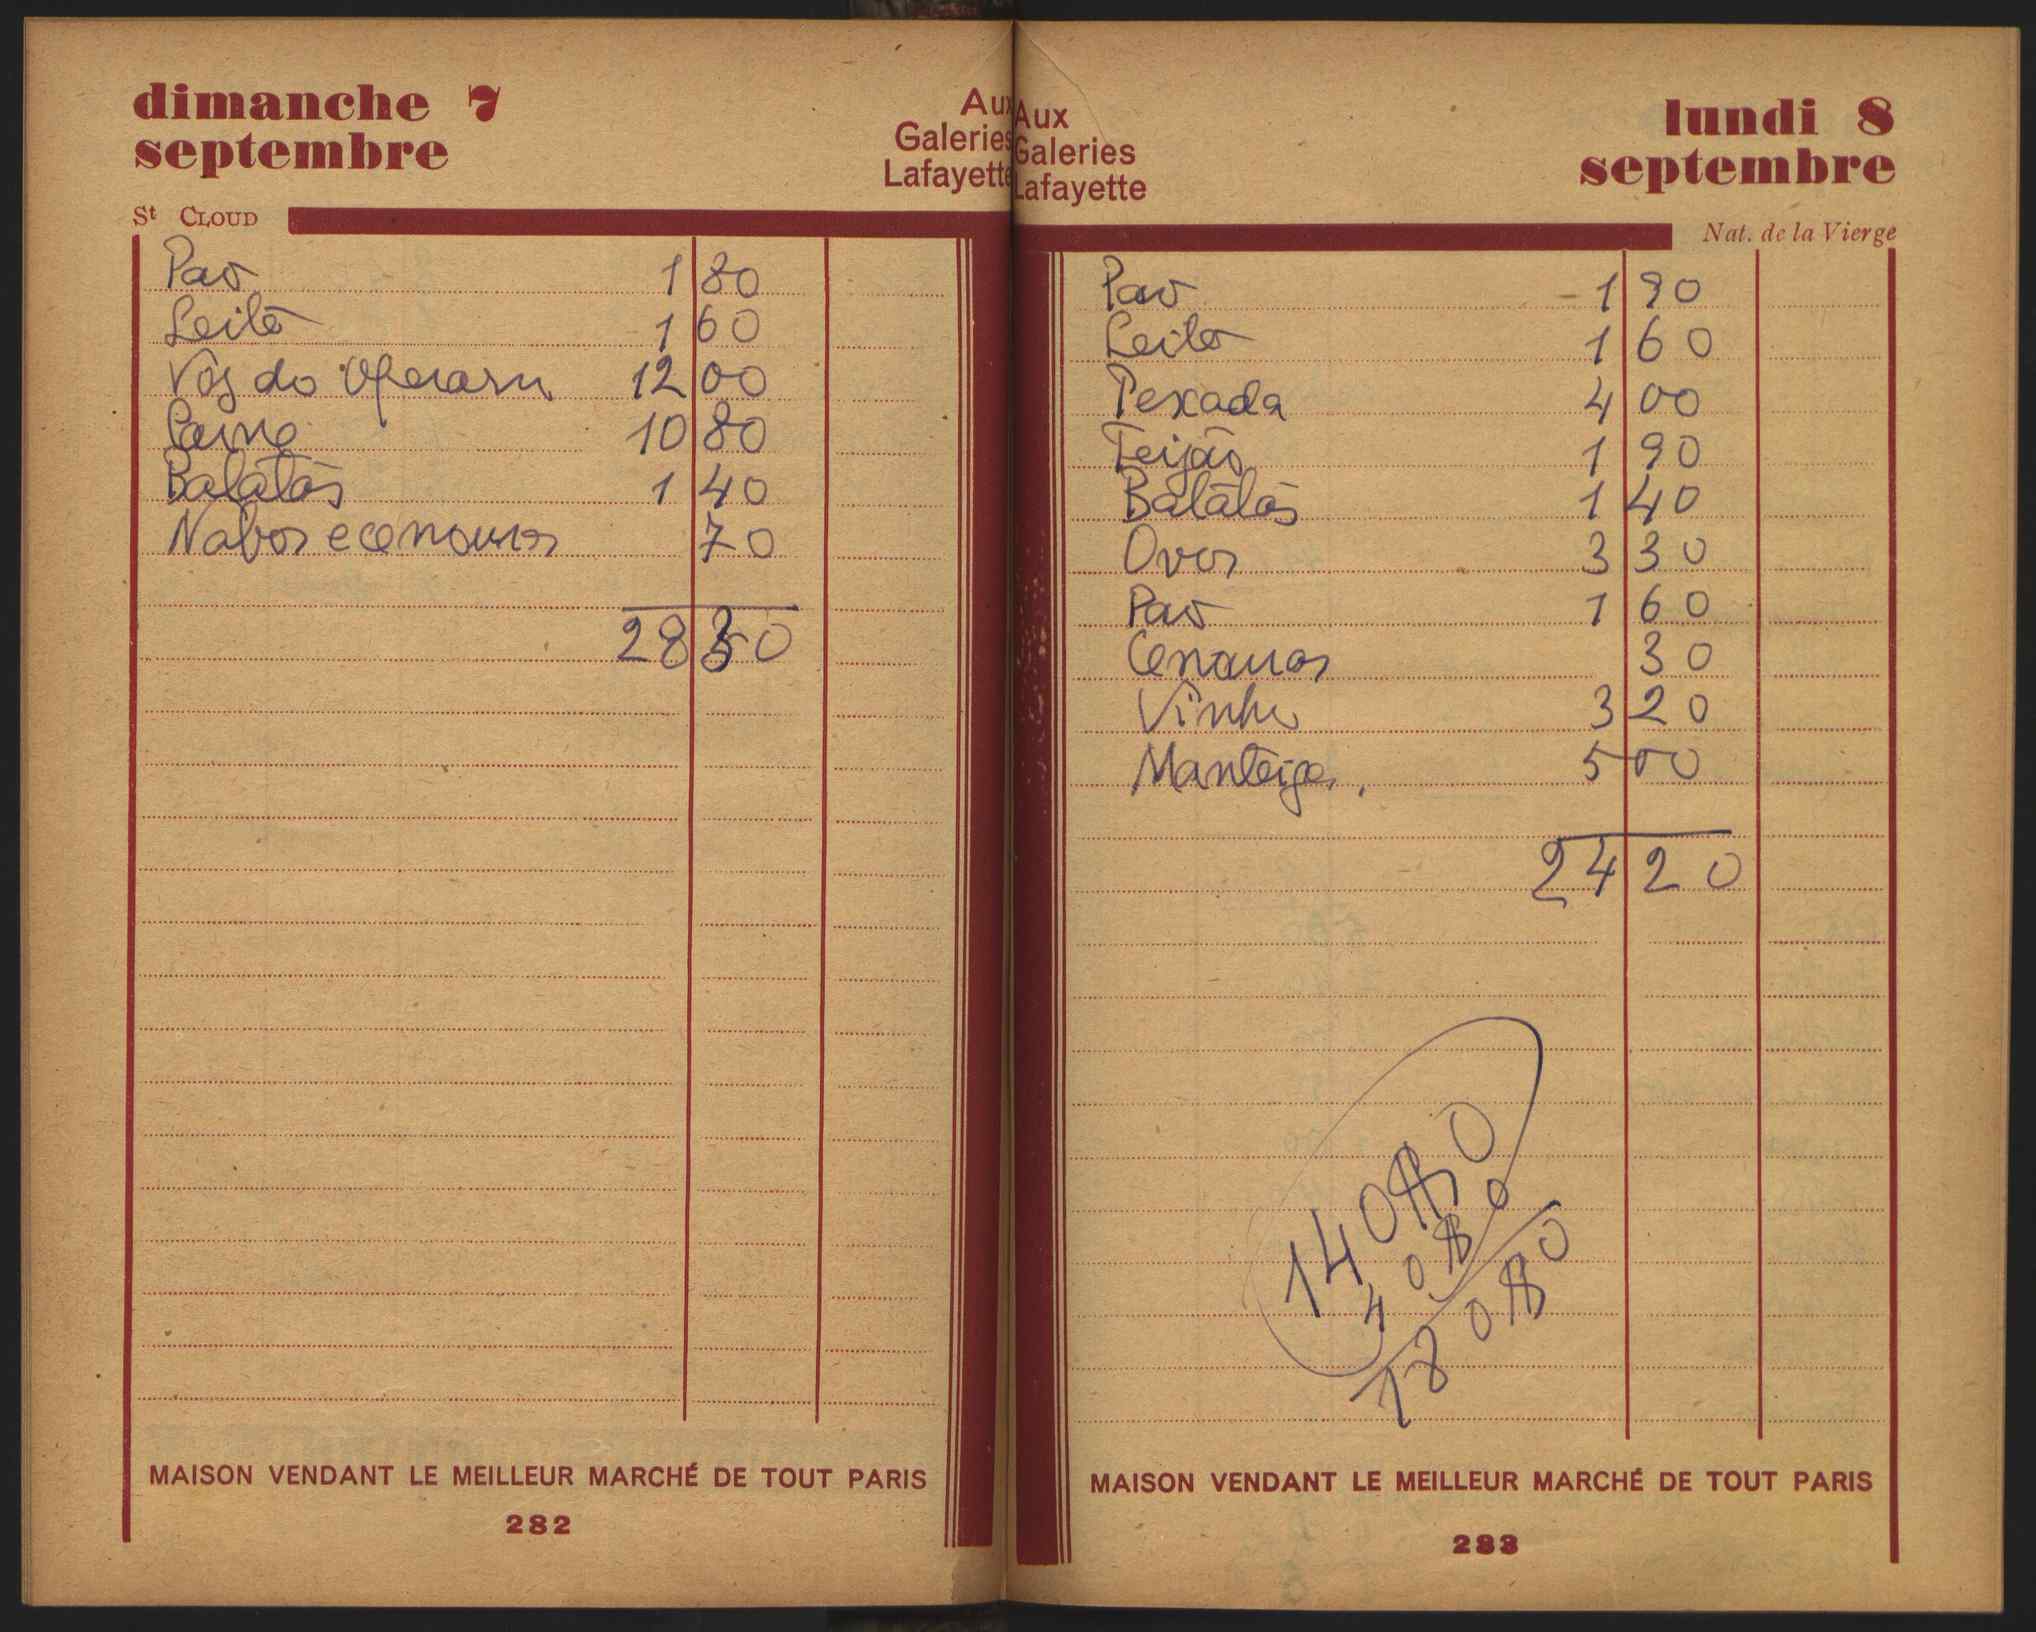 dimanche 7
septembre
Aux
Galeries
Lafayette
St CLOUD
Pao 1 80
Leite 1 60
Voz do Operario 12 00
Carne 10 80
Batatas 1 40
Nabos e cenouras 70
28 30
MAISON VENDANT LE MEILLEUR MARCHÉ DE TOUT PARIS
282
Aux
Galeries
Lafayette
lundi 8
septembre
Nat. de la Vierge
Pao 1 90
Leite 1 60
Pexada 4 00
Feijão 1 90
Batatas 1 40
Ovos 3 30
Pao 1 60
Cenouras 30
Vinho 3 20
Manteiga. 5 00
24 20
140$0
40$0
180$0
MAISON VENDANT LE MEILLEUR MARCHÉ DE TOUT PARIS
283